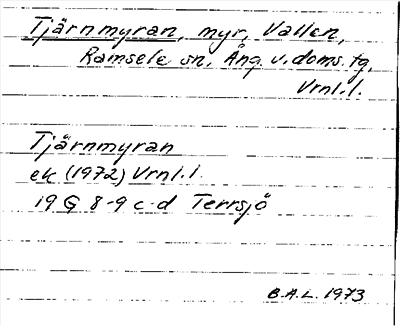 Tjärnmyran, myr, Vallen,
Ramsele sn, Ång. v. doms. tg,
Vrnl.l.
Tjärnmyran
ek (1972) Vrnl.l.
19 G 8-9 c-d Terrsjö
B.A.L. 1973